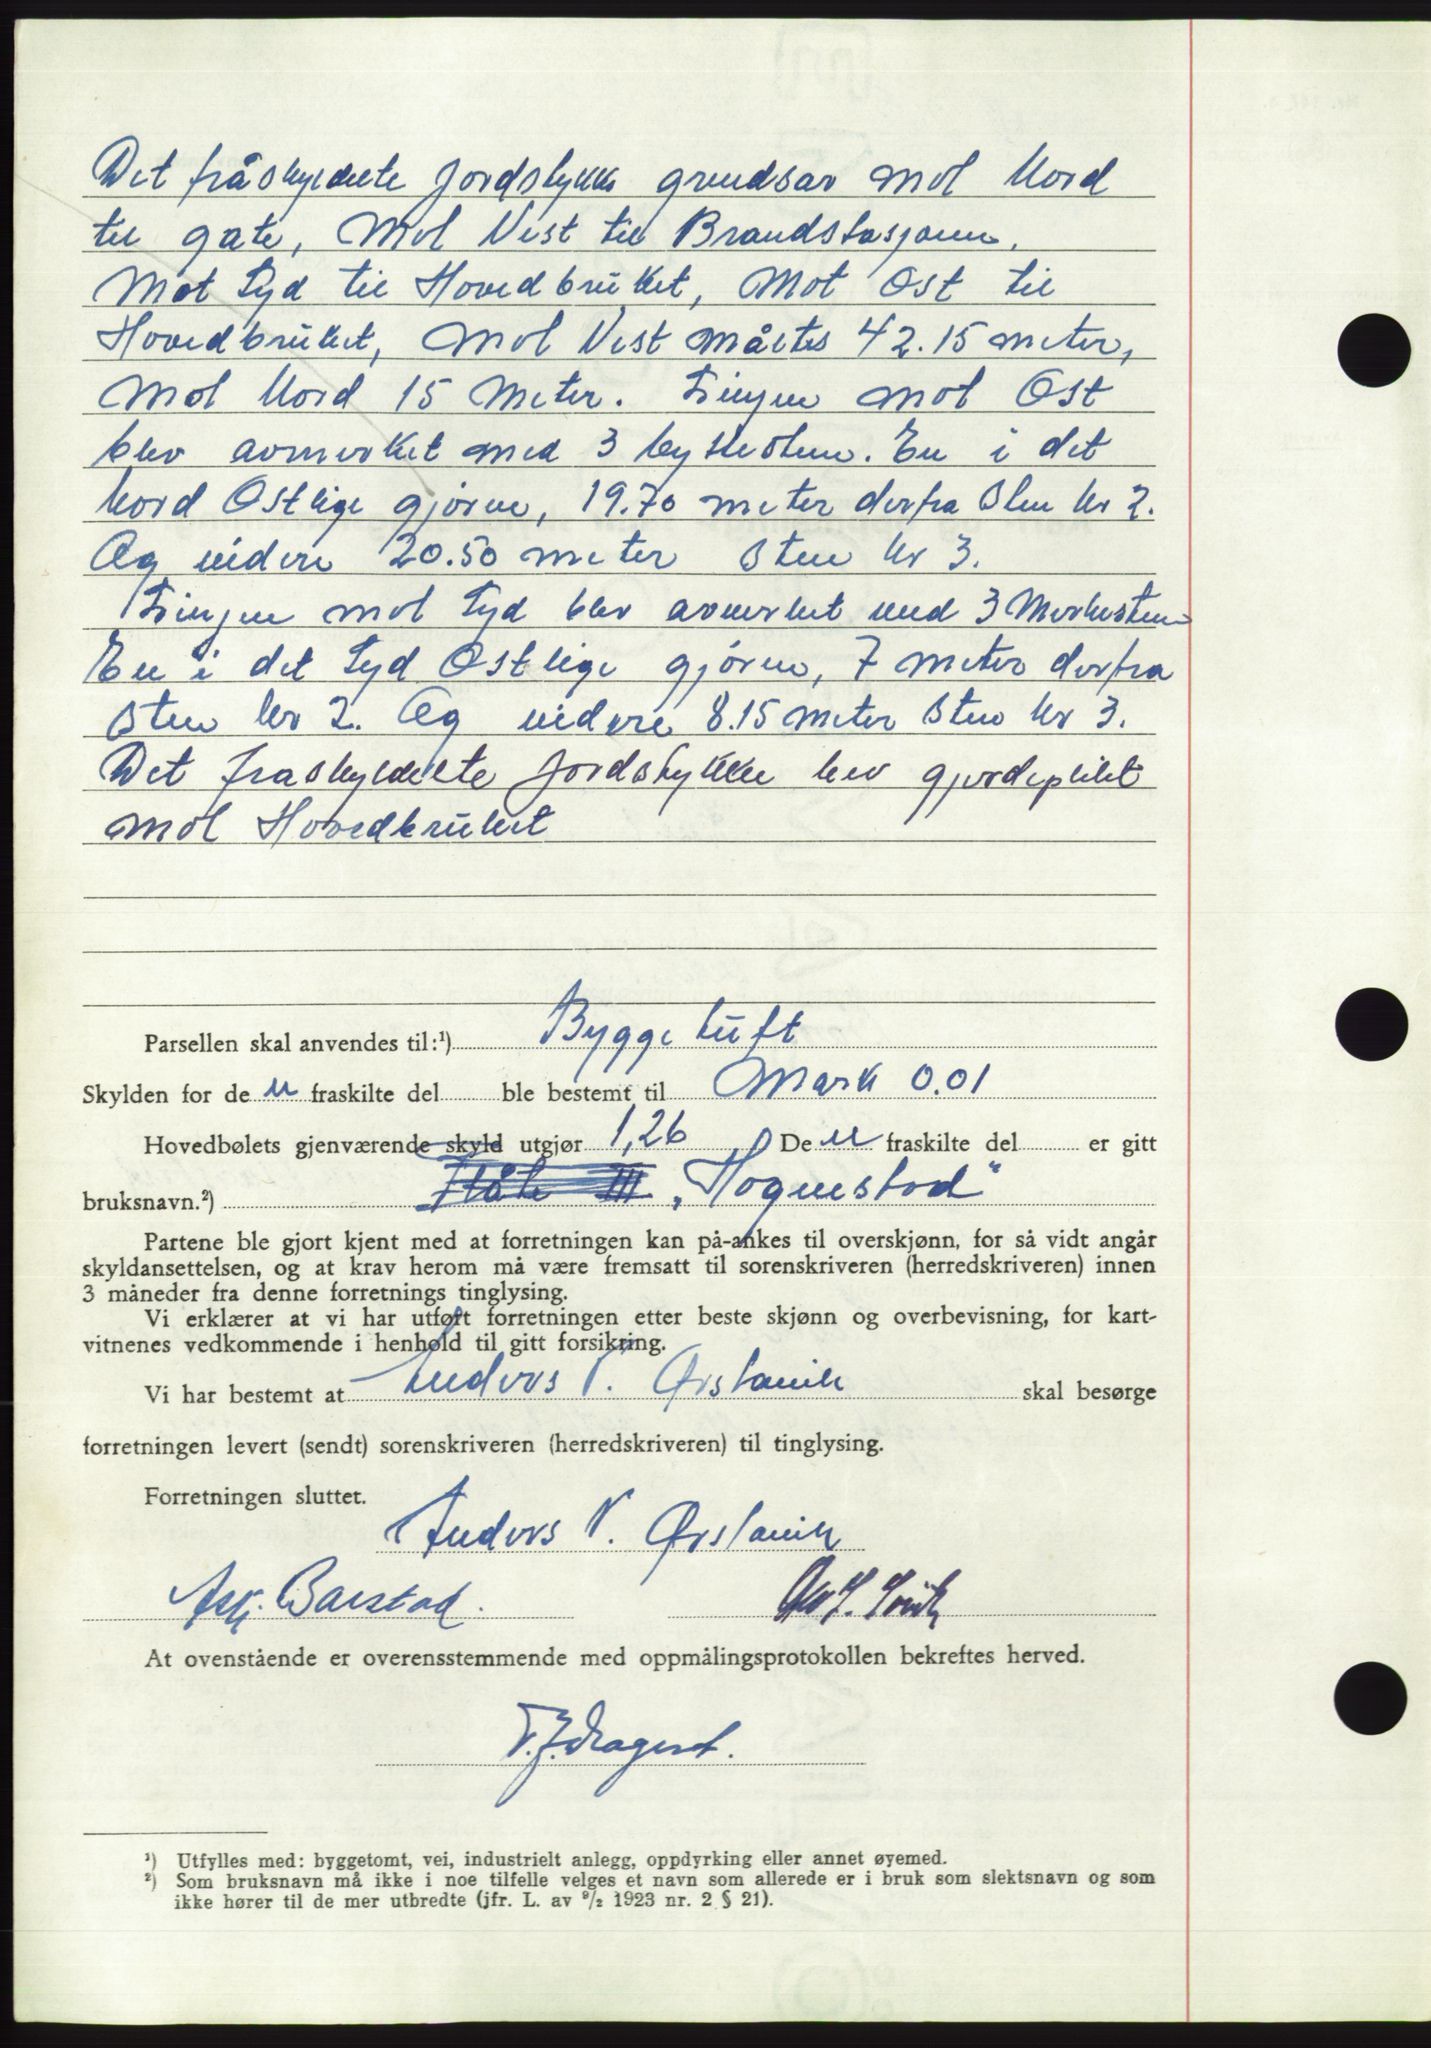 Det fråskyldete Jordstykke grendsar mot Nord
til gate, Mot Vest til Brandstasjonen.
Mot Syd til Hovedbruket, Mot Ost til
Hovedbruket, Mot Vest måltes 42.15 meter,
Mot Nord 15 Meter. Linjen mot Ost
blev avmerket med 3 bytestene. En i det
Nord Ostlige gjörne, 19.70 meter derfra Sten Nr 2.
Og videre 20.50 meter Sten Nr 3.
Linjen mot Syd blev avmerket med 3 Merkestene
En i det Syd Ostlige gjörne, 7 meter derfra
Sten Nr 2. Og videre 8.15 meter Sten Nr 3.
Det fraskyldete Jordstykke hev gjerdeplikt
mot Hovedbruket
Parsellen skal anvendes til:¹) Bygge tuft
Skylden for de n fraskilte del ble bestemt til Mark 0.01
Hovedbølets gjenværende skyld utgjør 1,26 De n fraskilte del er gitt
bruksnavn.²) „Hognestad"
Partene ble gjort kjent med at forretningen kan på-ankes til overskjønn, for så vidt angår
skyldansettelsen, og at krav herom må være fremsatt til sorenskriveren (herredskriveren) innen
3 måneder fra denne forretnings tinglysing.
Vi erklærer at vi har utført forretningen etter beste skjønn og overbevisning, for kart-
vitnenes vedkommende i henhold til gitt forsikring.
Vi har bestemt at Anders V. Ørstavik skal besørge
forretningen levert (sendt) sorenskriveren (herredskriveren) til tinglysing.
Forretningen sluttet.
Anders V. Ørstavik
Ask. Barstad.
At ovenstående er overensstemmende med oppmålingsprotokollen bekreftes herved.
¹) Utfylles med: byggetomt, vei, industrielt anlegg, oppdyrking eller annet øyemed.
²) Som bruksnavn må ikke i noe tilfelle velges et navn som allerede er i bruk som slektsnavn og som
ikke hører til de mer utbredte (jfr. L. av 9/2 1923 nr. 2 § 21).